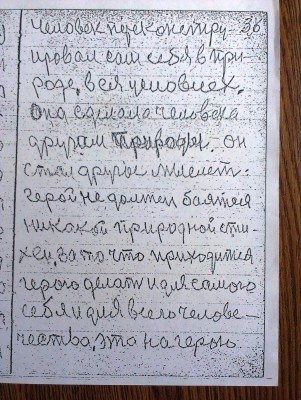 человек переконстру- 36
ировал сам себя в при
роде, в ея условиех.
Она сделала человека
другам природы, он
стал другое
герой не должен баятся
никакой природной сти-
хеи, за то что приходится
герою делать и для самого
себя и для всего челове-
чества, это на герою